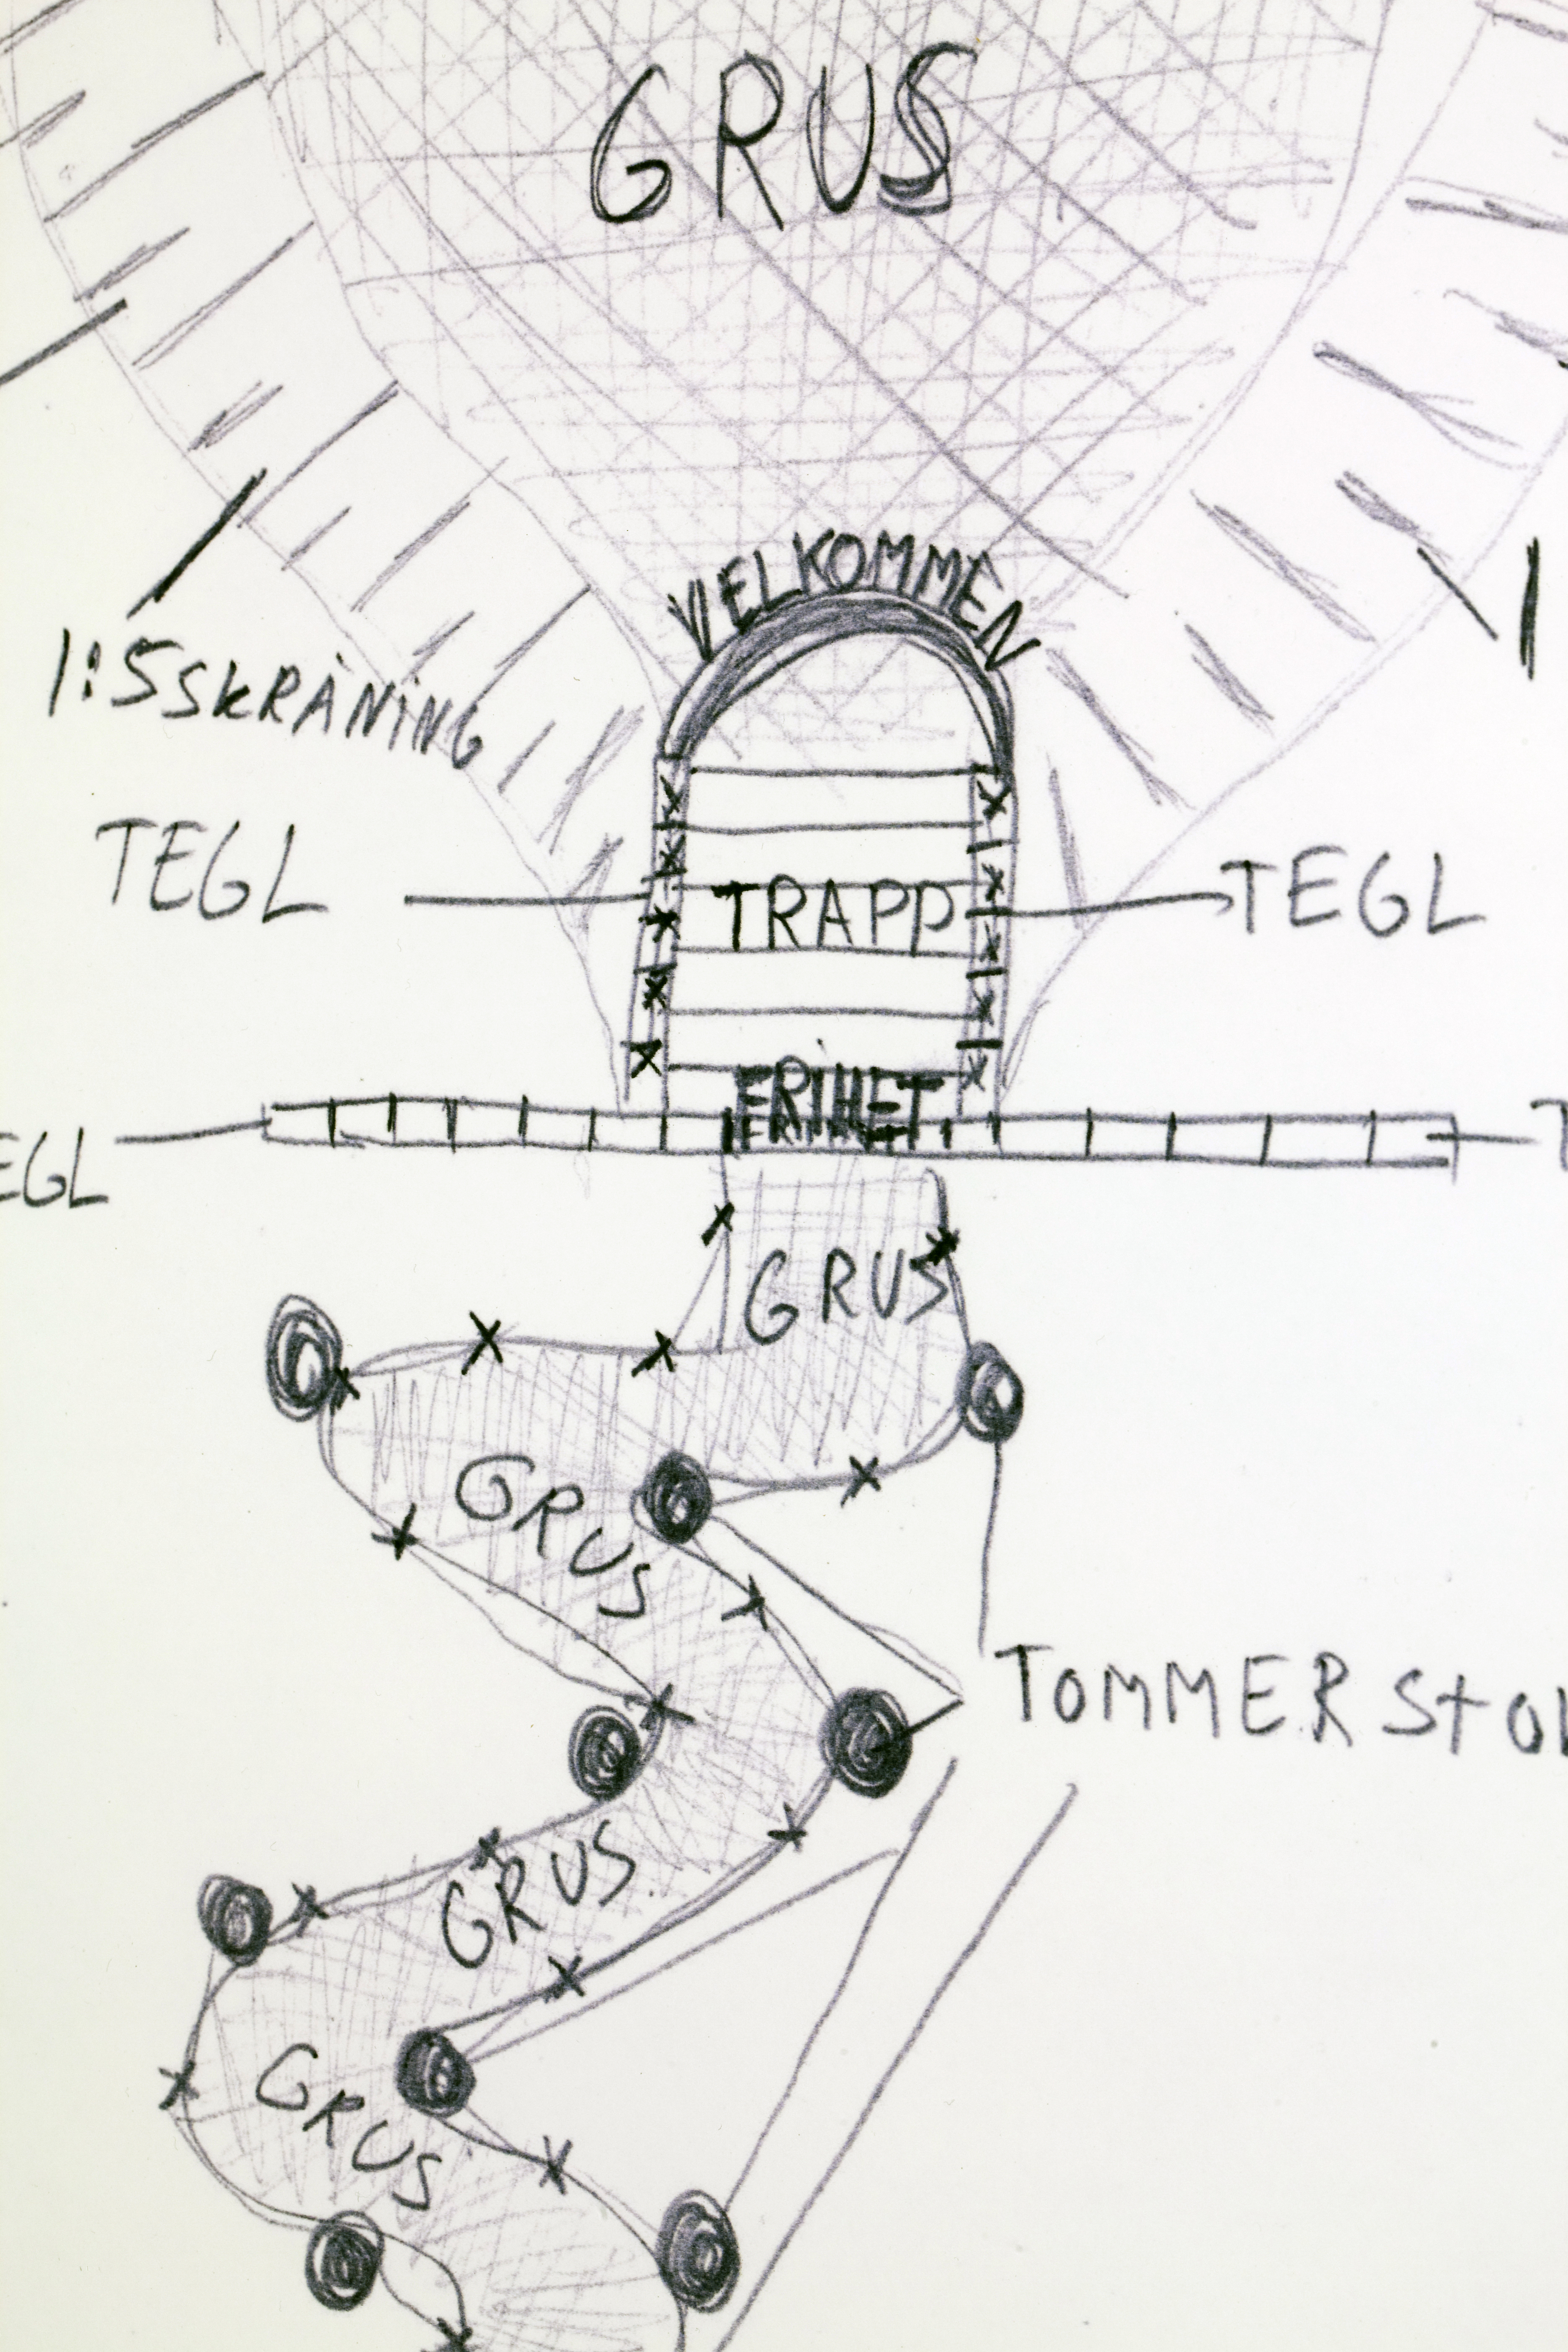 GRUS
VELKOMMEN
1:5 SKRÅNING
TEGL
TRAPP
TEGL
FRIHET
EGL
T
GRUS
GRUS
TOMMER STO
GRUS
GRUS